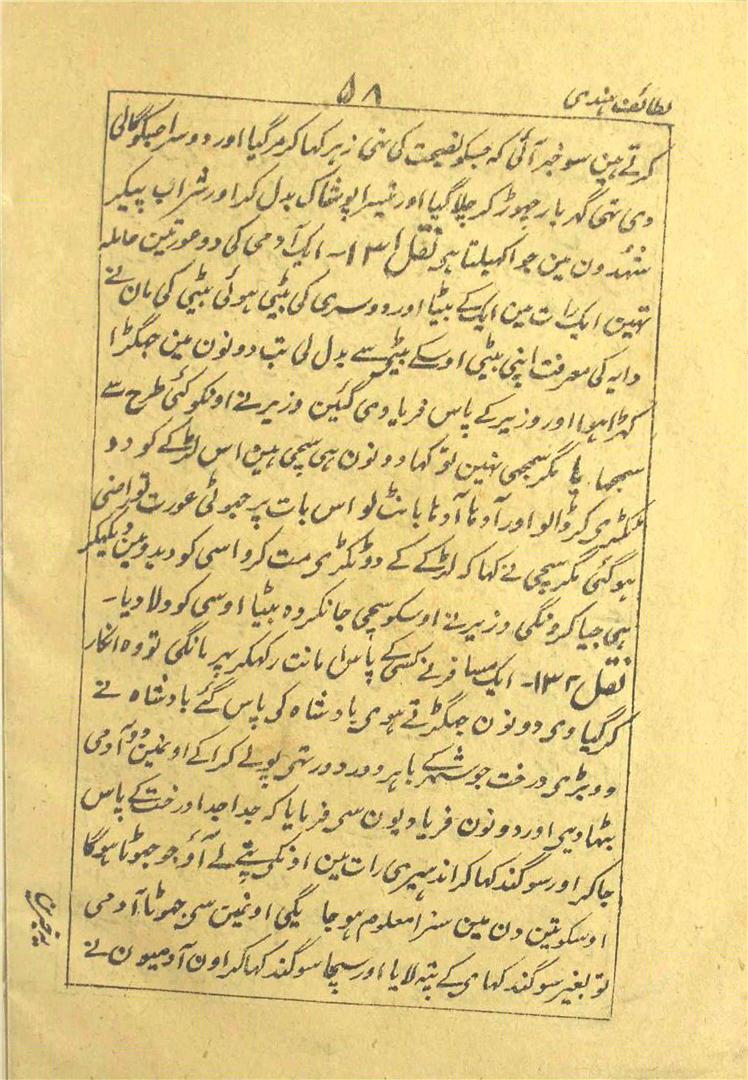 لطائف ہندی
۵۸
کرتے ہین سو خبر آئی کہ جسکو نصیحت کی تہی زہر کہا کر مر گیا اور دوسرا جسکو گالی
دی تہی گہر بار چہوڑ کر چلا گیا اور تیسرا پوشاک بدل کر اور شراب پیکر
شہدون مین جوا کہیلتا ہی نقل ۱۳۱۔ ایک آدمی کی دو عورتین حاملہ
تہین ایک رات مین ایک کے بیٹا اور دوسری کی بیٹی ہوئی بیٹی کی مان نے
دایہ کی معرفت اپنی بیٹی اوسکے بیٹے سے بدل لی تب دونون مین جہگڑا
کہڑا ہوا اور وزیر کے پاس فریادی گئین وزیر نے اونکو کئی طرح سے
سمجہایا مگر سمجہی نہین تو کہا دونون ہی سچی ہین اس لڑکے کو دو
ٹکڑی کر ڈالو اور آدہا آدہا بانٹ لو اس بات پر جہوٹی عورت تو راضی
ہو گئی مگر سچی نے کہا کہ لڑکے کے دو ٹکڑی مت کرو اسی کو دیدو مین دیکہکر
ہی جیا کرونگی وزیر نے اوسکو سچی جانکر وہ بیٹا اوسی کو دلا دیا۔
نقل ۱۳۲۔ ایک مسافر نے کسی کے پاس امانت رکہکر پہر مانگی تو وہ انکار
کر گیا وی دونون جہگڑتے ہوی بادشاہ کی پاس گئے بادشاہ نے
دو بڑی درخت جو شہر کے باہر دور دور تہی پولے کرا کے اونمین دو آدمی
بٹہا دیی اور دونون فریادیون سی فرمایا کہ جدا جدا درخت کے پاس
جا کر اور سوگند کہا کر اندہیری رات مین اونکی پتے لے آؤ جو جہوٹا ہوگا
اوسکو تین دن مین سزا معلوم ہو جایگی اونمین سی جہوٹا آدمی
تو بغیر سوگند کہای کے پتہ لایا اور سچا سوگند کہا کر اون آدمیون نے